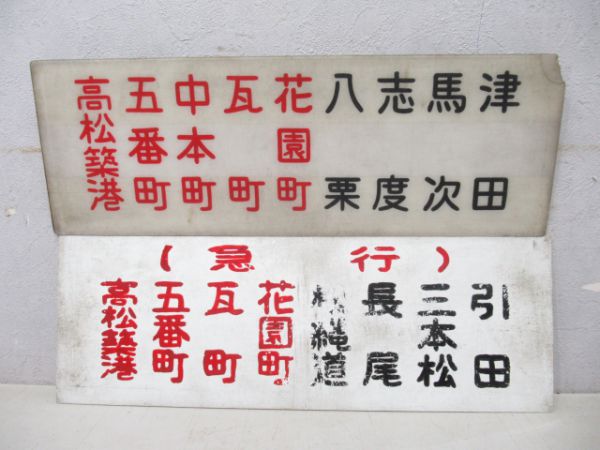 津田
馬次
志度
八栗
花園町
瓦町
中本町
五番町
高松築港
(急行)
引田
三本松
長尾
縄道
花園町
瓦町
五番町
高松築港